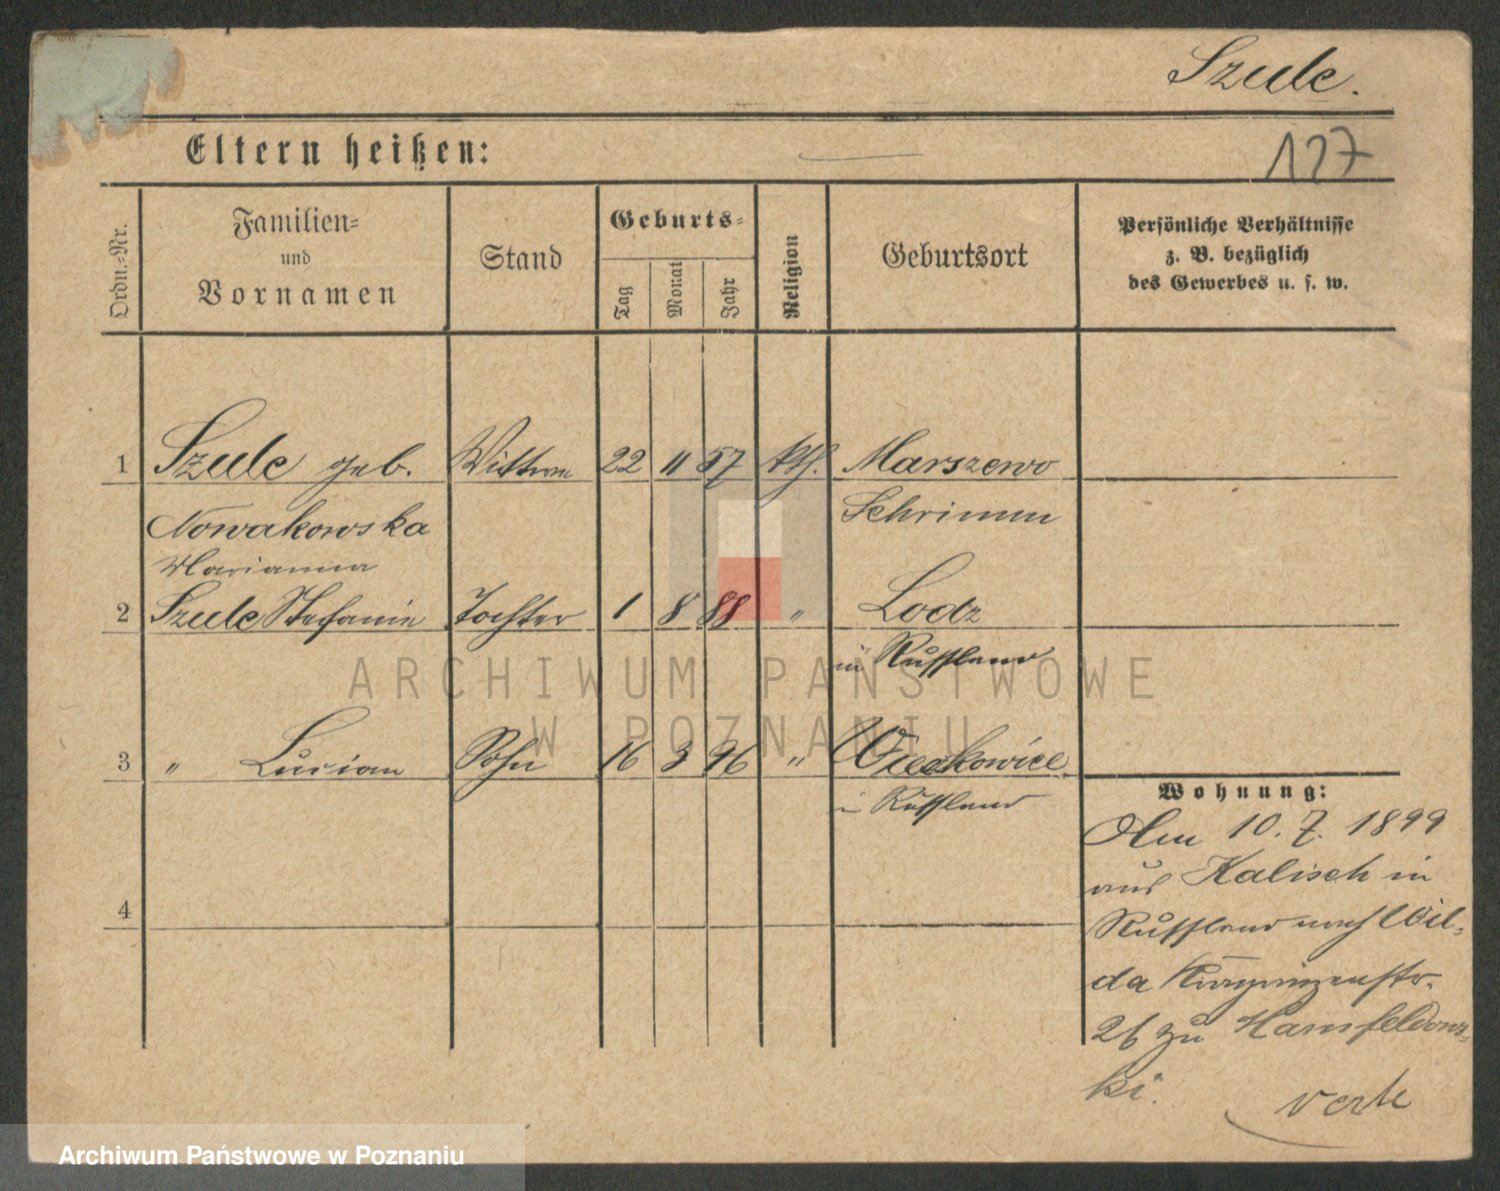 Szulc.
Eltern heißen:
127
Ordn.-Nr.
Familien-
und
Vornamen
Stand
Geburts-
Tag
Monat
Jahr
Religion
Geburtsort
Persönliche Verhältnisse
z. B. bezüglich
des Gewerbes u. s. w.
1 Szulc geb. Wittwe 22 11 57 kth. Marszewo
Nowakowska Schrimm
Marianna
2 Szulc Stefanie Tochter 1 8 88 " Lodz
in Russland
ARCHIWUM PAŃSTWOWE
W POZNANIU
3 " Lucian Sohn 16 3 96 " Wieckowice
in Russland
Wohnung:
Am 10. 7. 1899
aus Kalisch in
Russland nach Wil-
4
da
26 zu
ki.
verte
Archiwum Państwowe w Poznaniu